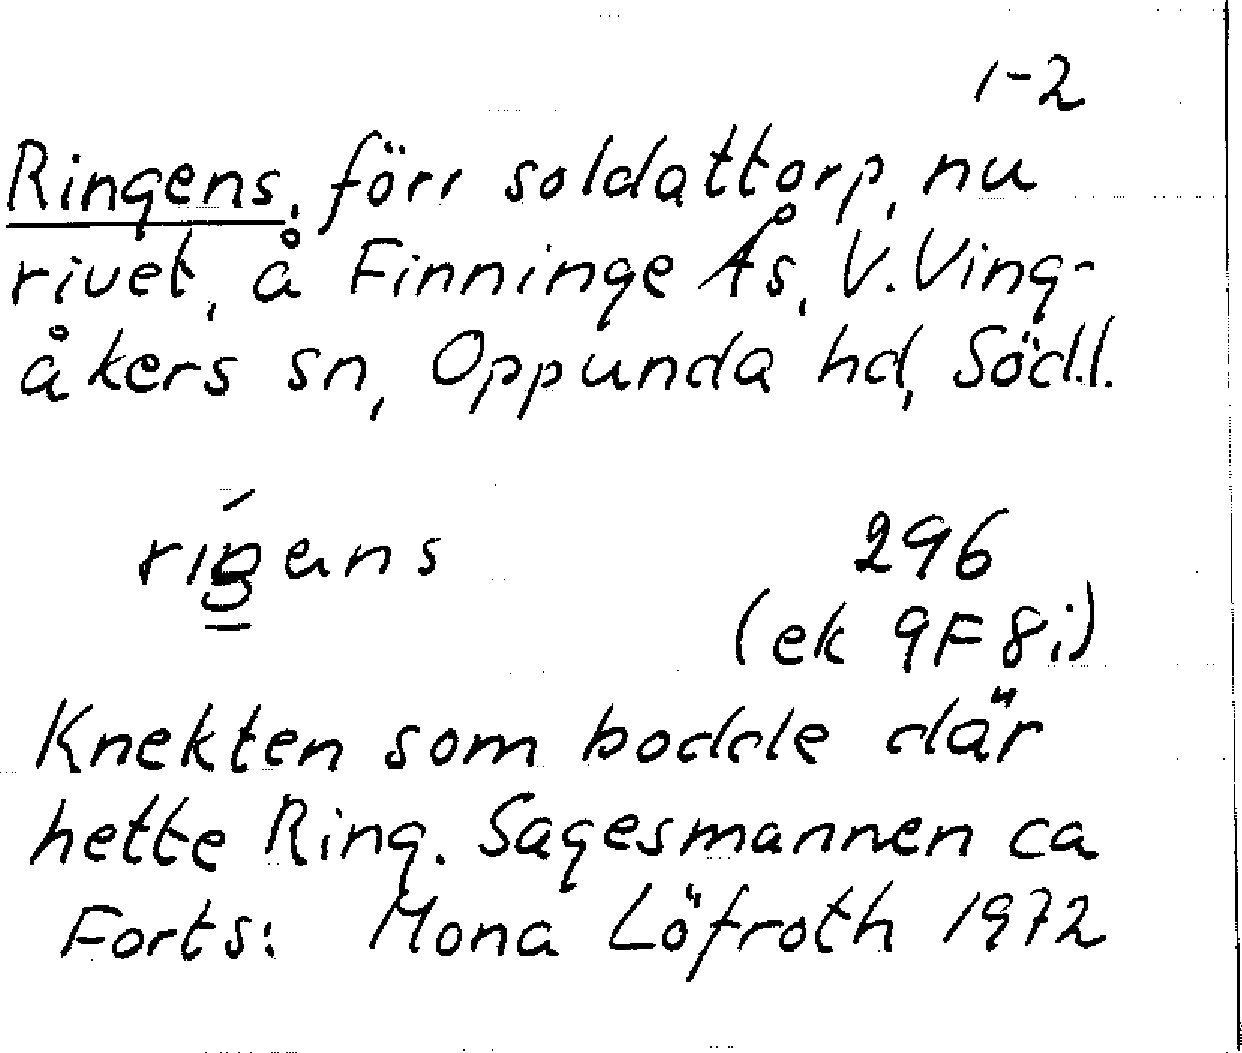 1-2
Ringens, förr soldattorp, nu
rivet, å Finninge Ås, V. Ving-
åkers sn, Oppunda hd, Södl.
296
(ek 9F 8i)
Knekten som bodde där
hette Ring. Sagesmannen ca
Forts: Mona Löfroth 1972